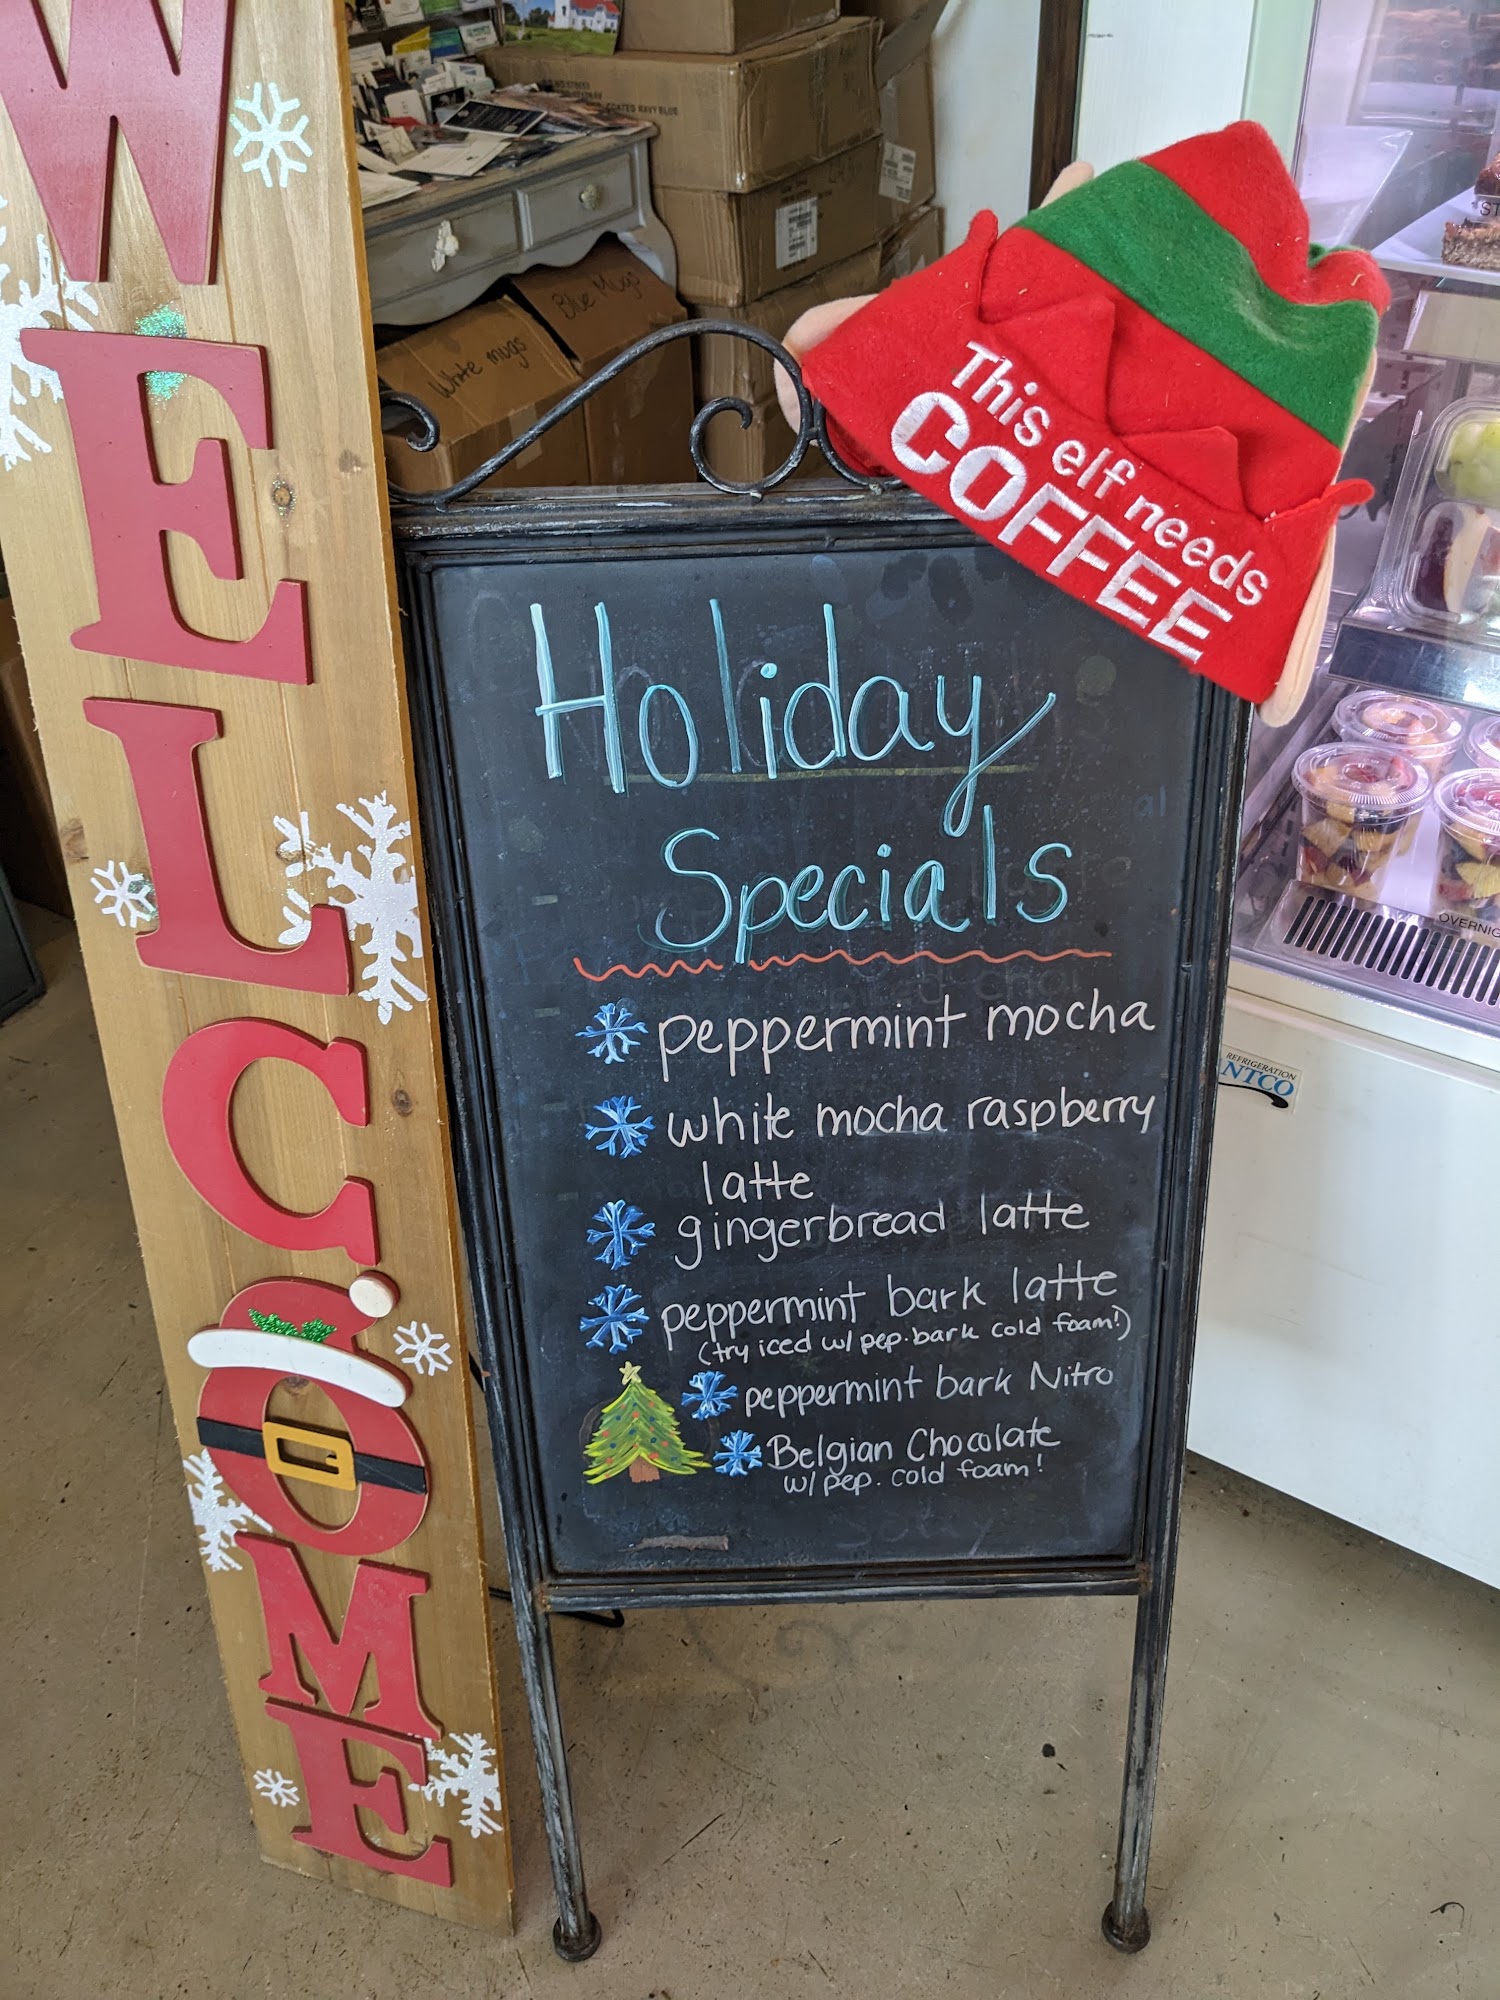 WELCOME
COATED NAVY BLUE
White mugs
Blue Mugs
This elf needs
COFFEE
Holiday
Specials
peppermint mocha
white mocha raspberry
latte
gingerbread latte
peppermint bark latte
(try iced w/ pep. bark cold foam!)
peppermint bark Nitro
Belgian Chocolate
w/ pep. cold foam!
REFRIGERATION
NTCO